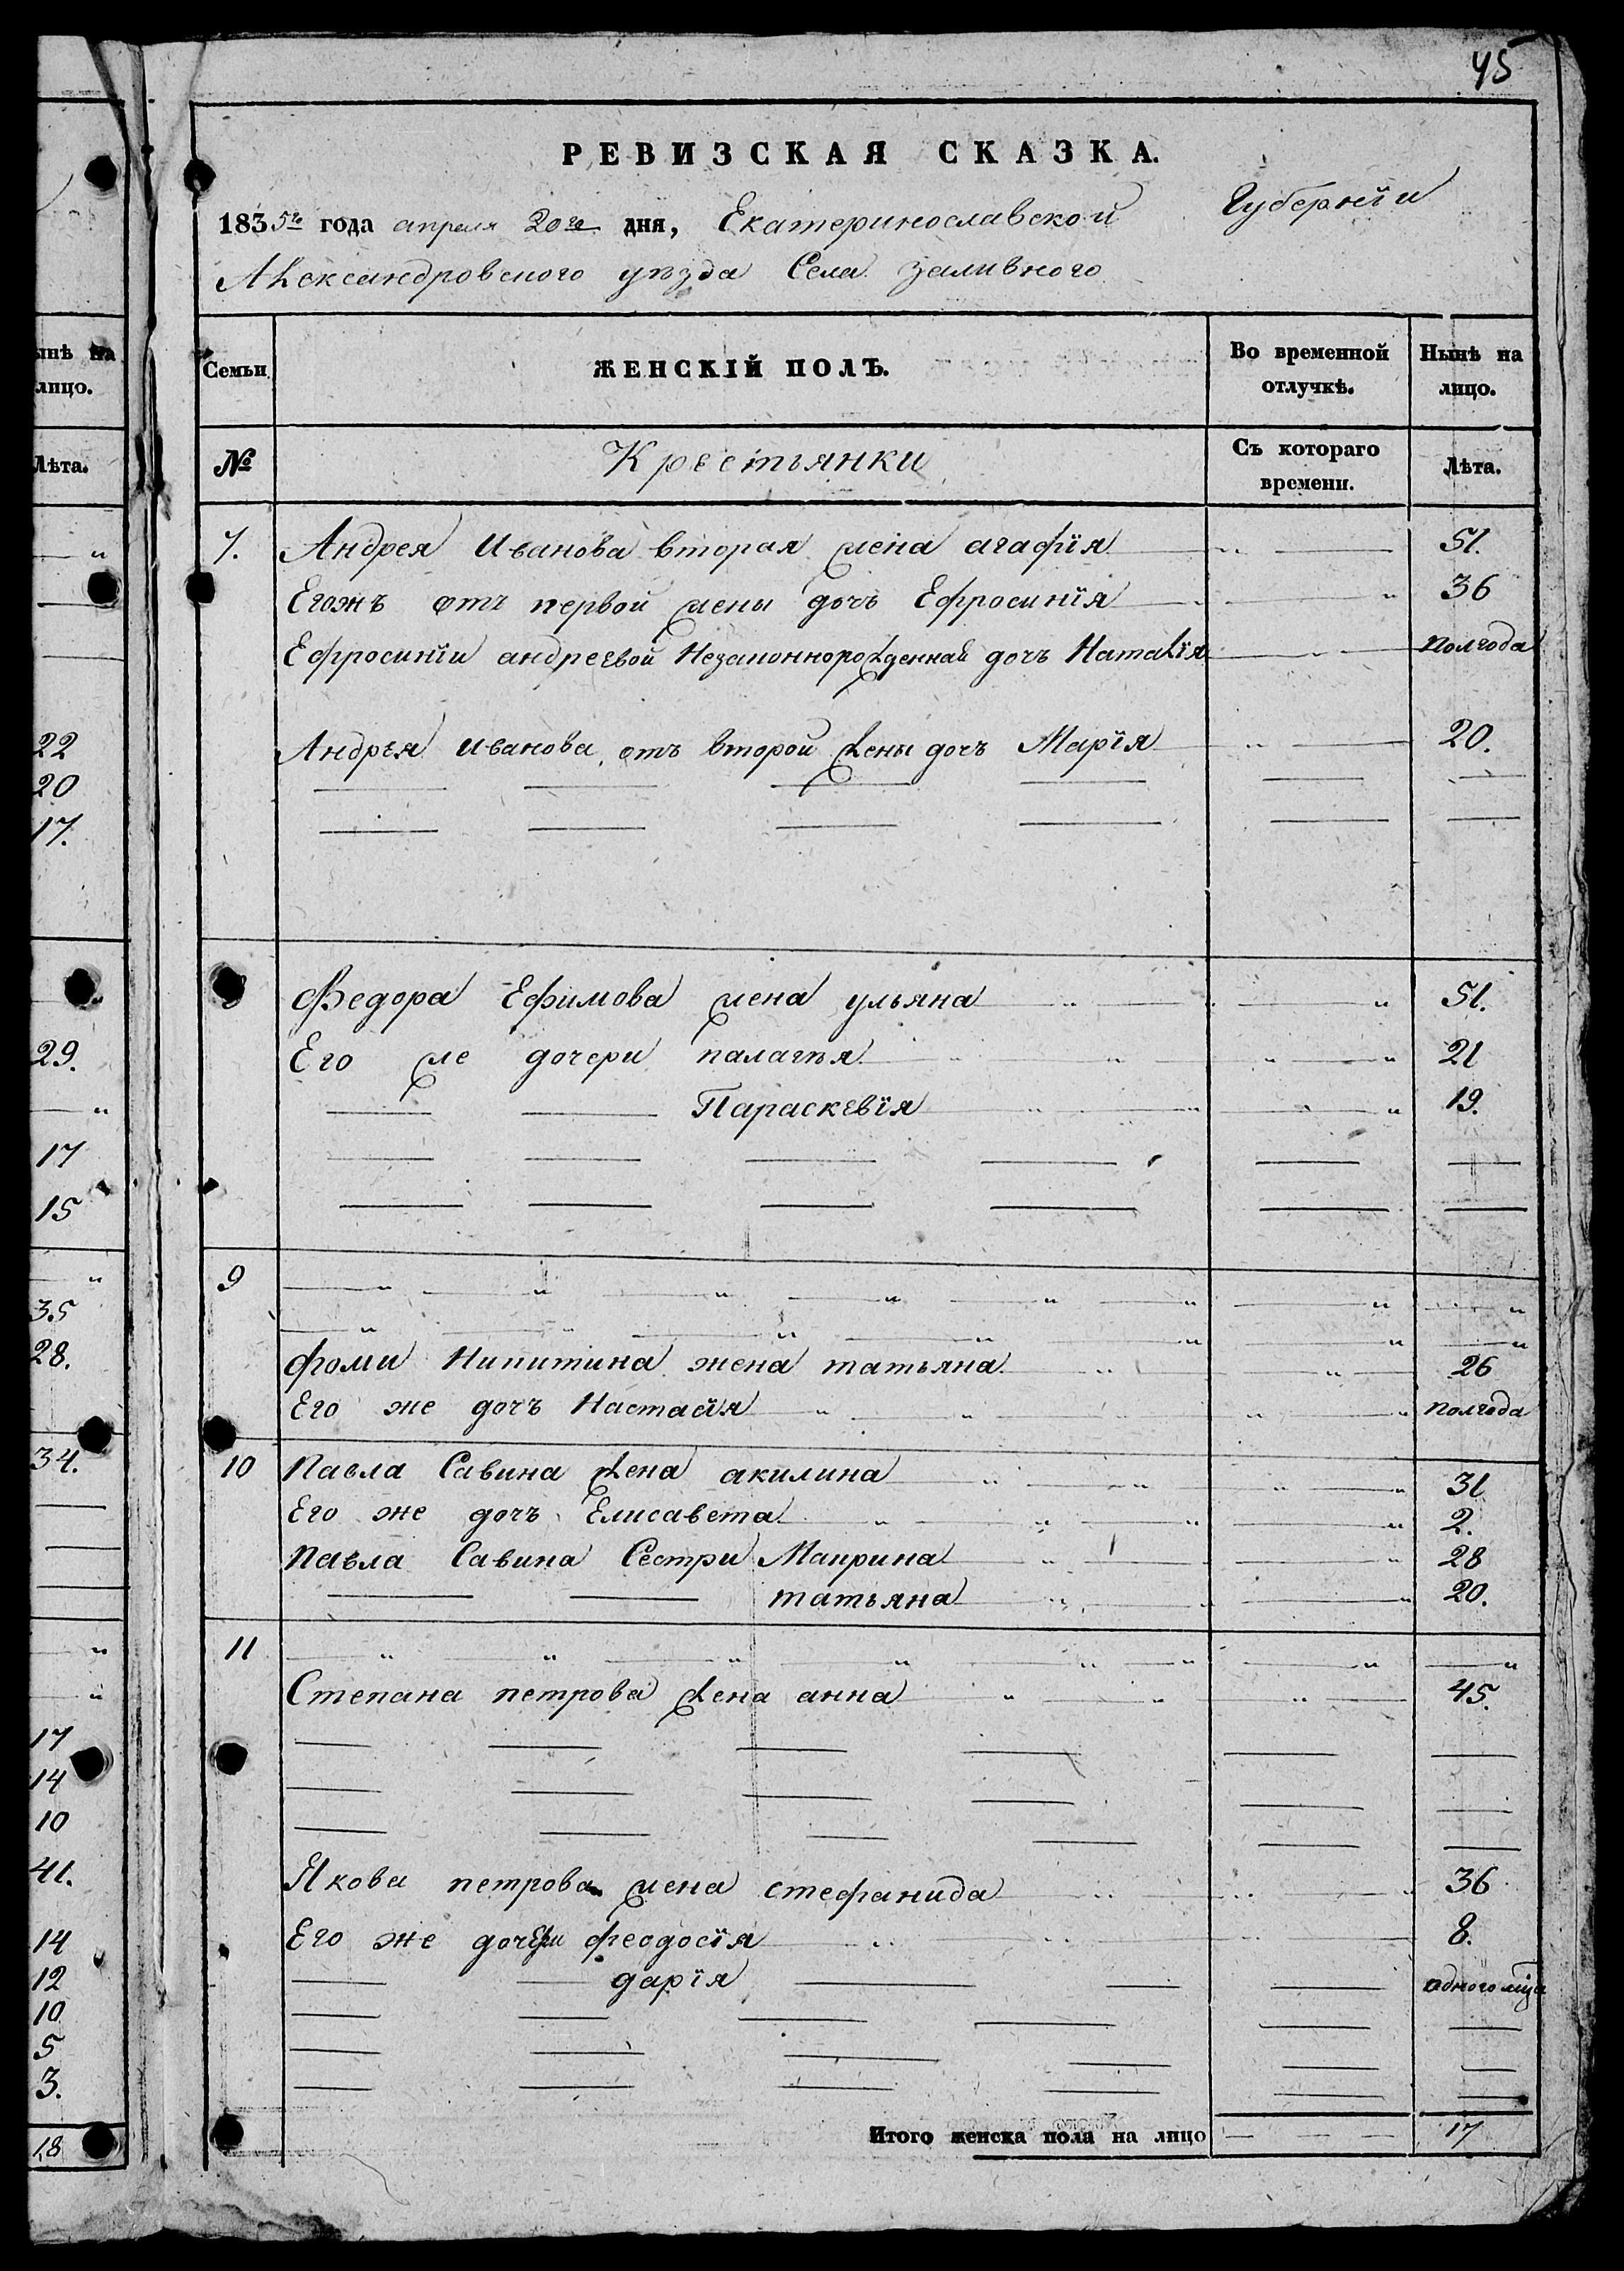 45
РЕВИЗСКАЯ СКАЗКА.
1835го года апреля 20го дня, Екатеринославской Губернїи
Александровского уезда Села Заливного
ынѣ на
лицо.
Лѣта.
22
20
17.
29.
17
15
35
28.
34.
17
14
10
41.
14
12
10
5
3.
18
Семьи ЖЕНСКІЙ ПОЛЪ. Во временной отлучкѣ. Нынѣ на лицо.
№ Крестьянки Съ котораго времени. Лѣта.
7. Андрея Иванова вторая жена агафїя 51.
Егожъ отъ первой жены дочъ Ефросинїя 36
Ефросинїи андреевой Незаконнорожденная дочъ Наталїя полгода
Андрея Иванова отъ второй жены дочъ Марїя 20.
Федора Ефимова жена ульяна 51.
Его же дочери палагея 21
Параскевїя 19.
9
фоми Никитина жена татьяна 26
Его же дочъ Настасїя полгода
10 Павла Савина жена акилина 31
Его же дочъ Елисавета 2.
Павла Савина Сестри Маврина 28
татьяна 20.
11
Степана петрова жена анна 45.
Якова петрова жена стефанида 36
Его же дочери феодосїя 8.
дарїя одного мца
Итого женска пола на лицо 17